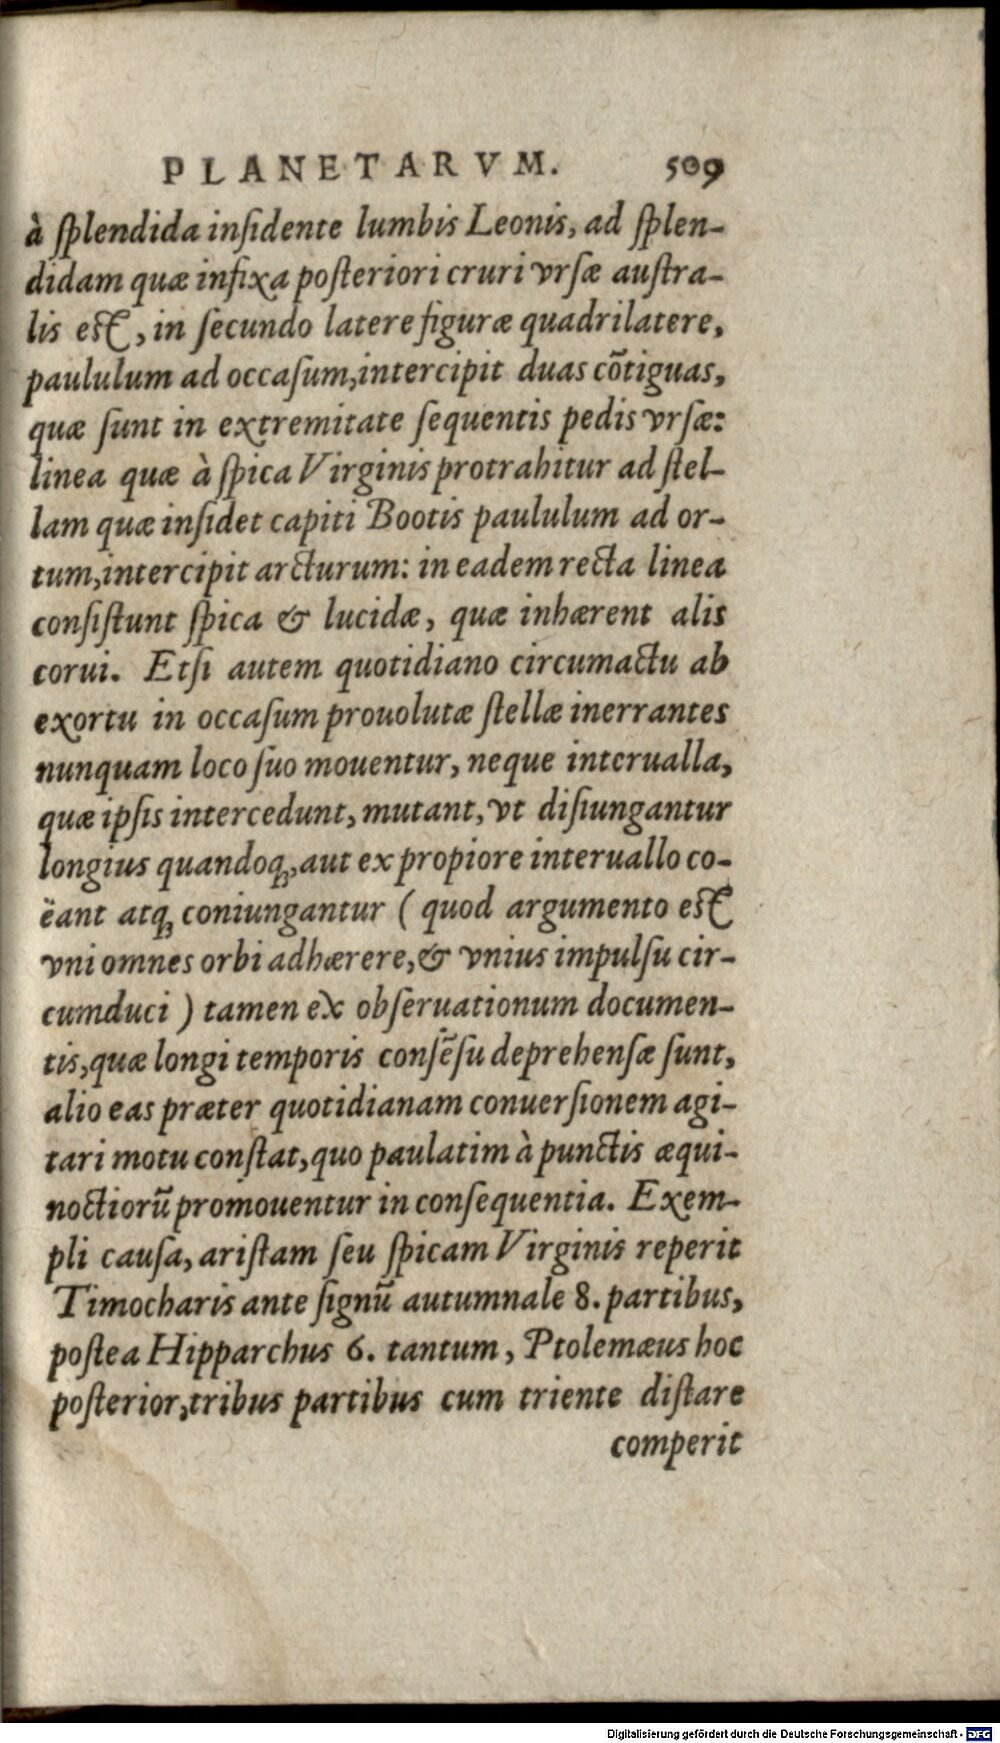 PLANETARVM. 509
à ſplendida inſidente lumbis Leonis, ad ſplen-
didam quæ infixa poſteriori cruri vrſæ auſtra-
lis eſt, in ſecundo latere figuræ quadrilatere,
paululum ad occaſum, intercipit duas cõtiguas,
quæ ſunt in extremitate ſequentis pedis vrſæ:
linea quæ à ſpica Virginis protrahitur ad ſtel-
lam quæ inſidet capiti Bootis paululum ad or-
tum, intercipit arcturum: in eadem recta linea
conſiſtunt ſpica & lucidæ, quæ inhærent alis
corui. Etſi autem quotidiano circumactu ab
exortu in occaſum prouolutæ ſtellæ inerrantes
nunquam loco ſuo mouentur, neque interualla,
quæ ipſis intercedunt, mutant, vt diſiungantur
longius quandoq;, aut ex propiore interuallo co-
ëant atq; coniungantur (quod argumento eſt
vni omnes orbi adhærere, & vnius impulſu cir-
cumduci) tamen ex obſeruationum documen-
tis, quæ longi temporis conſẽſu deprehenſæ ſunt,
alio eas præter quotidianam conuerſionem agi-
tari motu conſtat, quo paulatim à punctis æqui-
noctiorũ promouentur in conſequentia. Exem-
pli cauſa, ariſtam ſeu ſpicam Virginis reperit
Timocharis ante ſignũ autumnale 8. partibus,
poſtea Hipparchus 6. tantum, Ptolemæus hoc
poſterior, tribus partibus cum triente diſtare
comperit
Digitalisierung gefördert durch die Deutsche Forschungsgemeinschaft - DFG